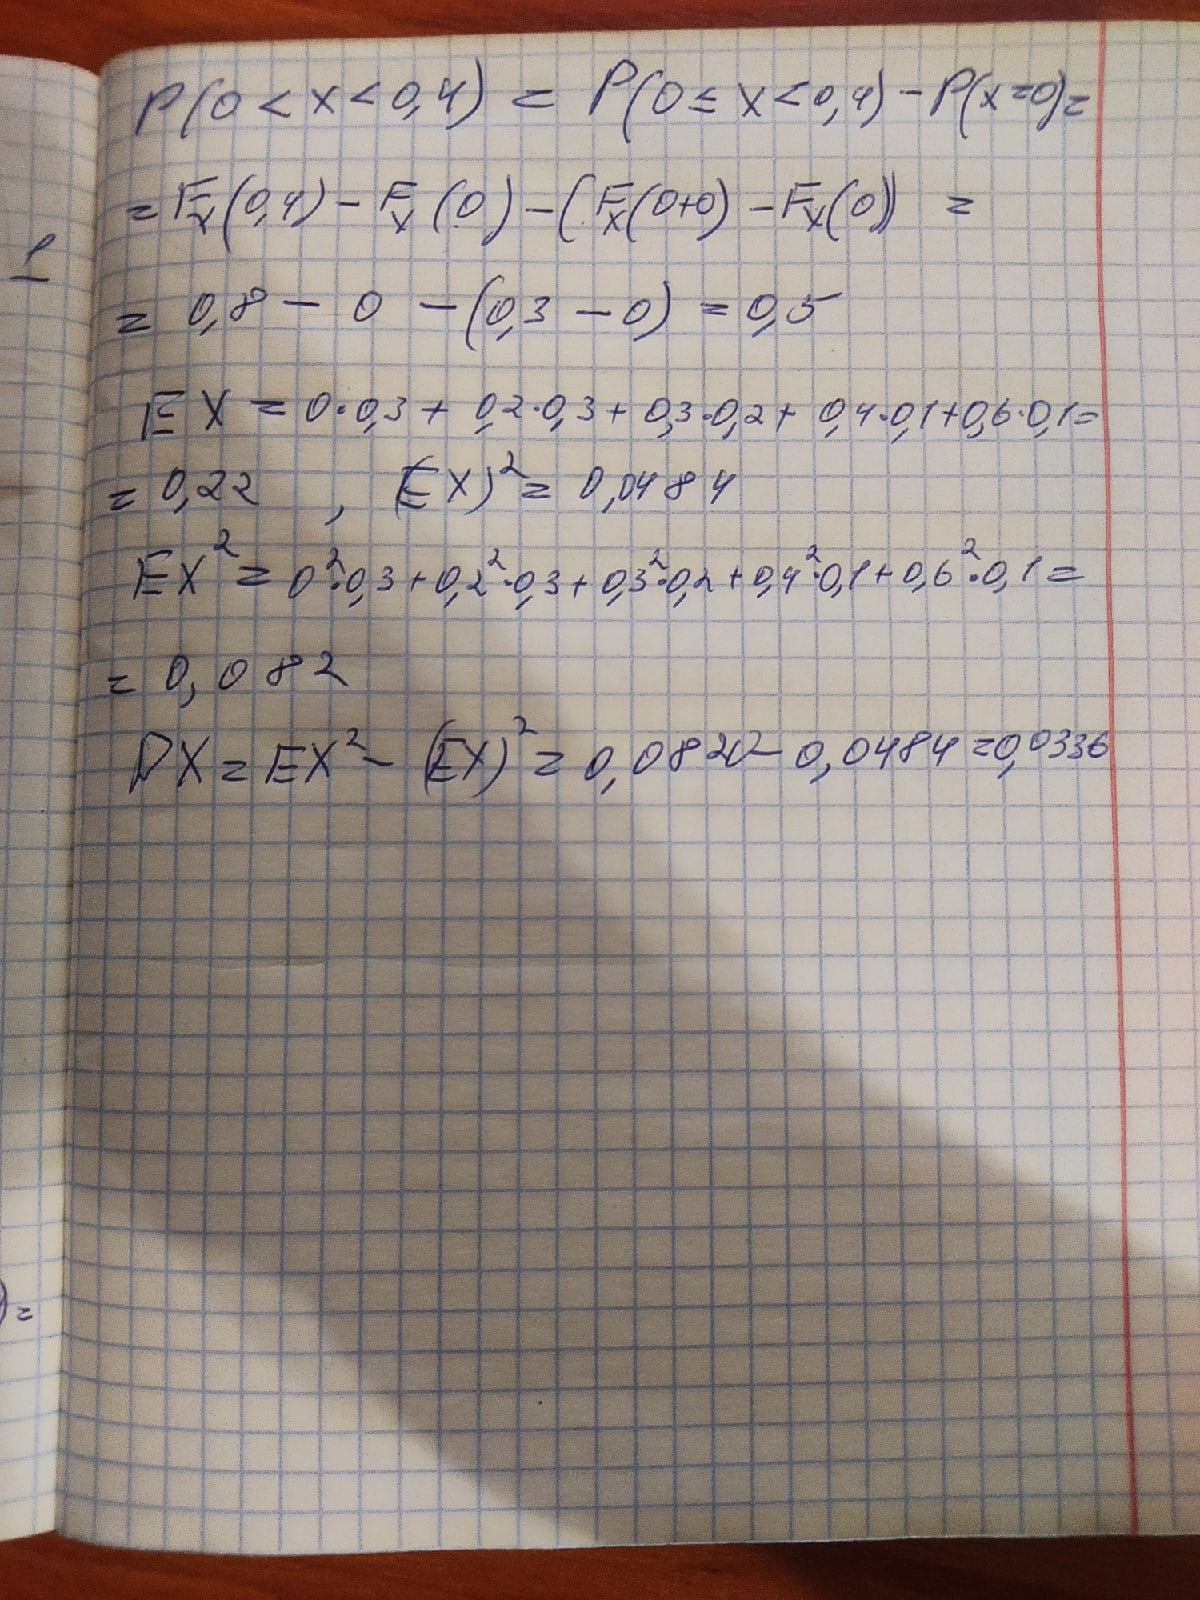 P(0 < x < 0,4) = P(0 ≤ x < 0,4) - P(x=0) =
= Fx(0,4) - Fx(0) - (Fx(0+0) - Fx(0)) =
1
= 0,8 - 0 - (0,3 - 0) = 0,5
EX = 0·0,3 + 0,2·0,3 + 0,3·0,2 + 0,4·0,1 + 0,6·0,1 =
= 0,22 , (EX)² = 0,0484
EX² = 0²·0,3 + 0,2²·0,3 + 0,3²·0,2 + 0,4²·0,1 + 0,6²·0,1 =
= 0,082
DX = EX² - (EX)² = 0,0820 - 0,0484 = 0,0336
) =